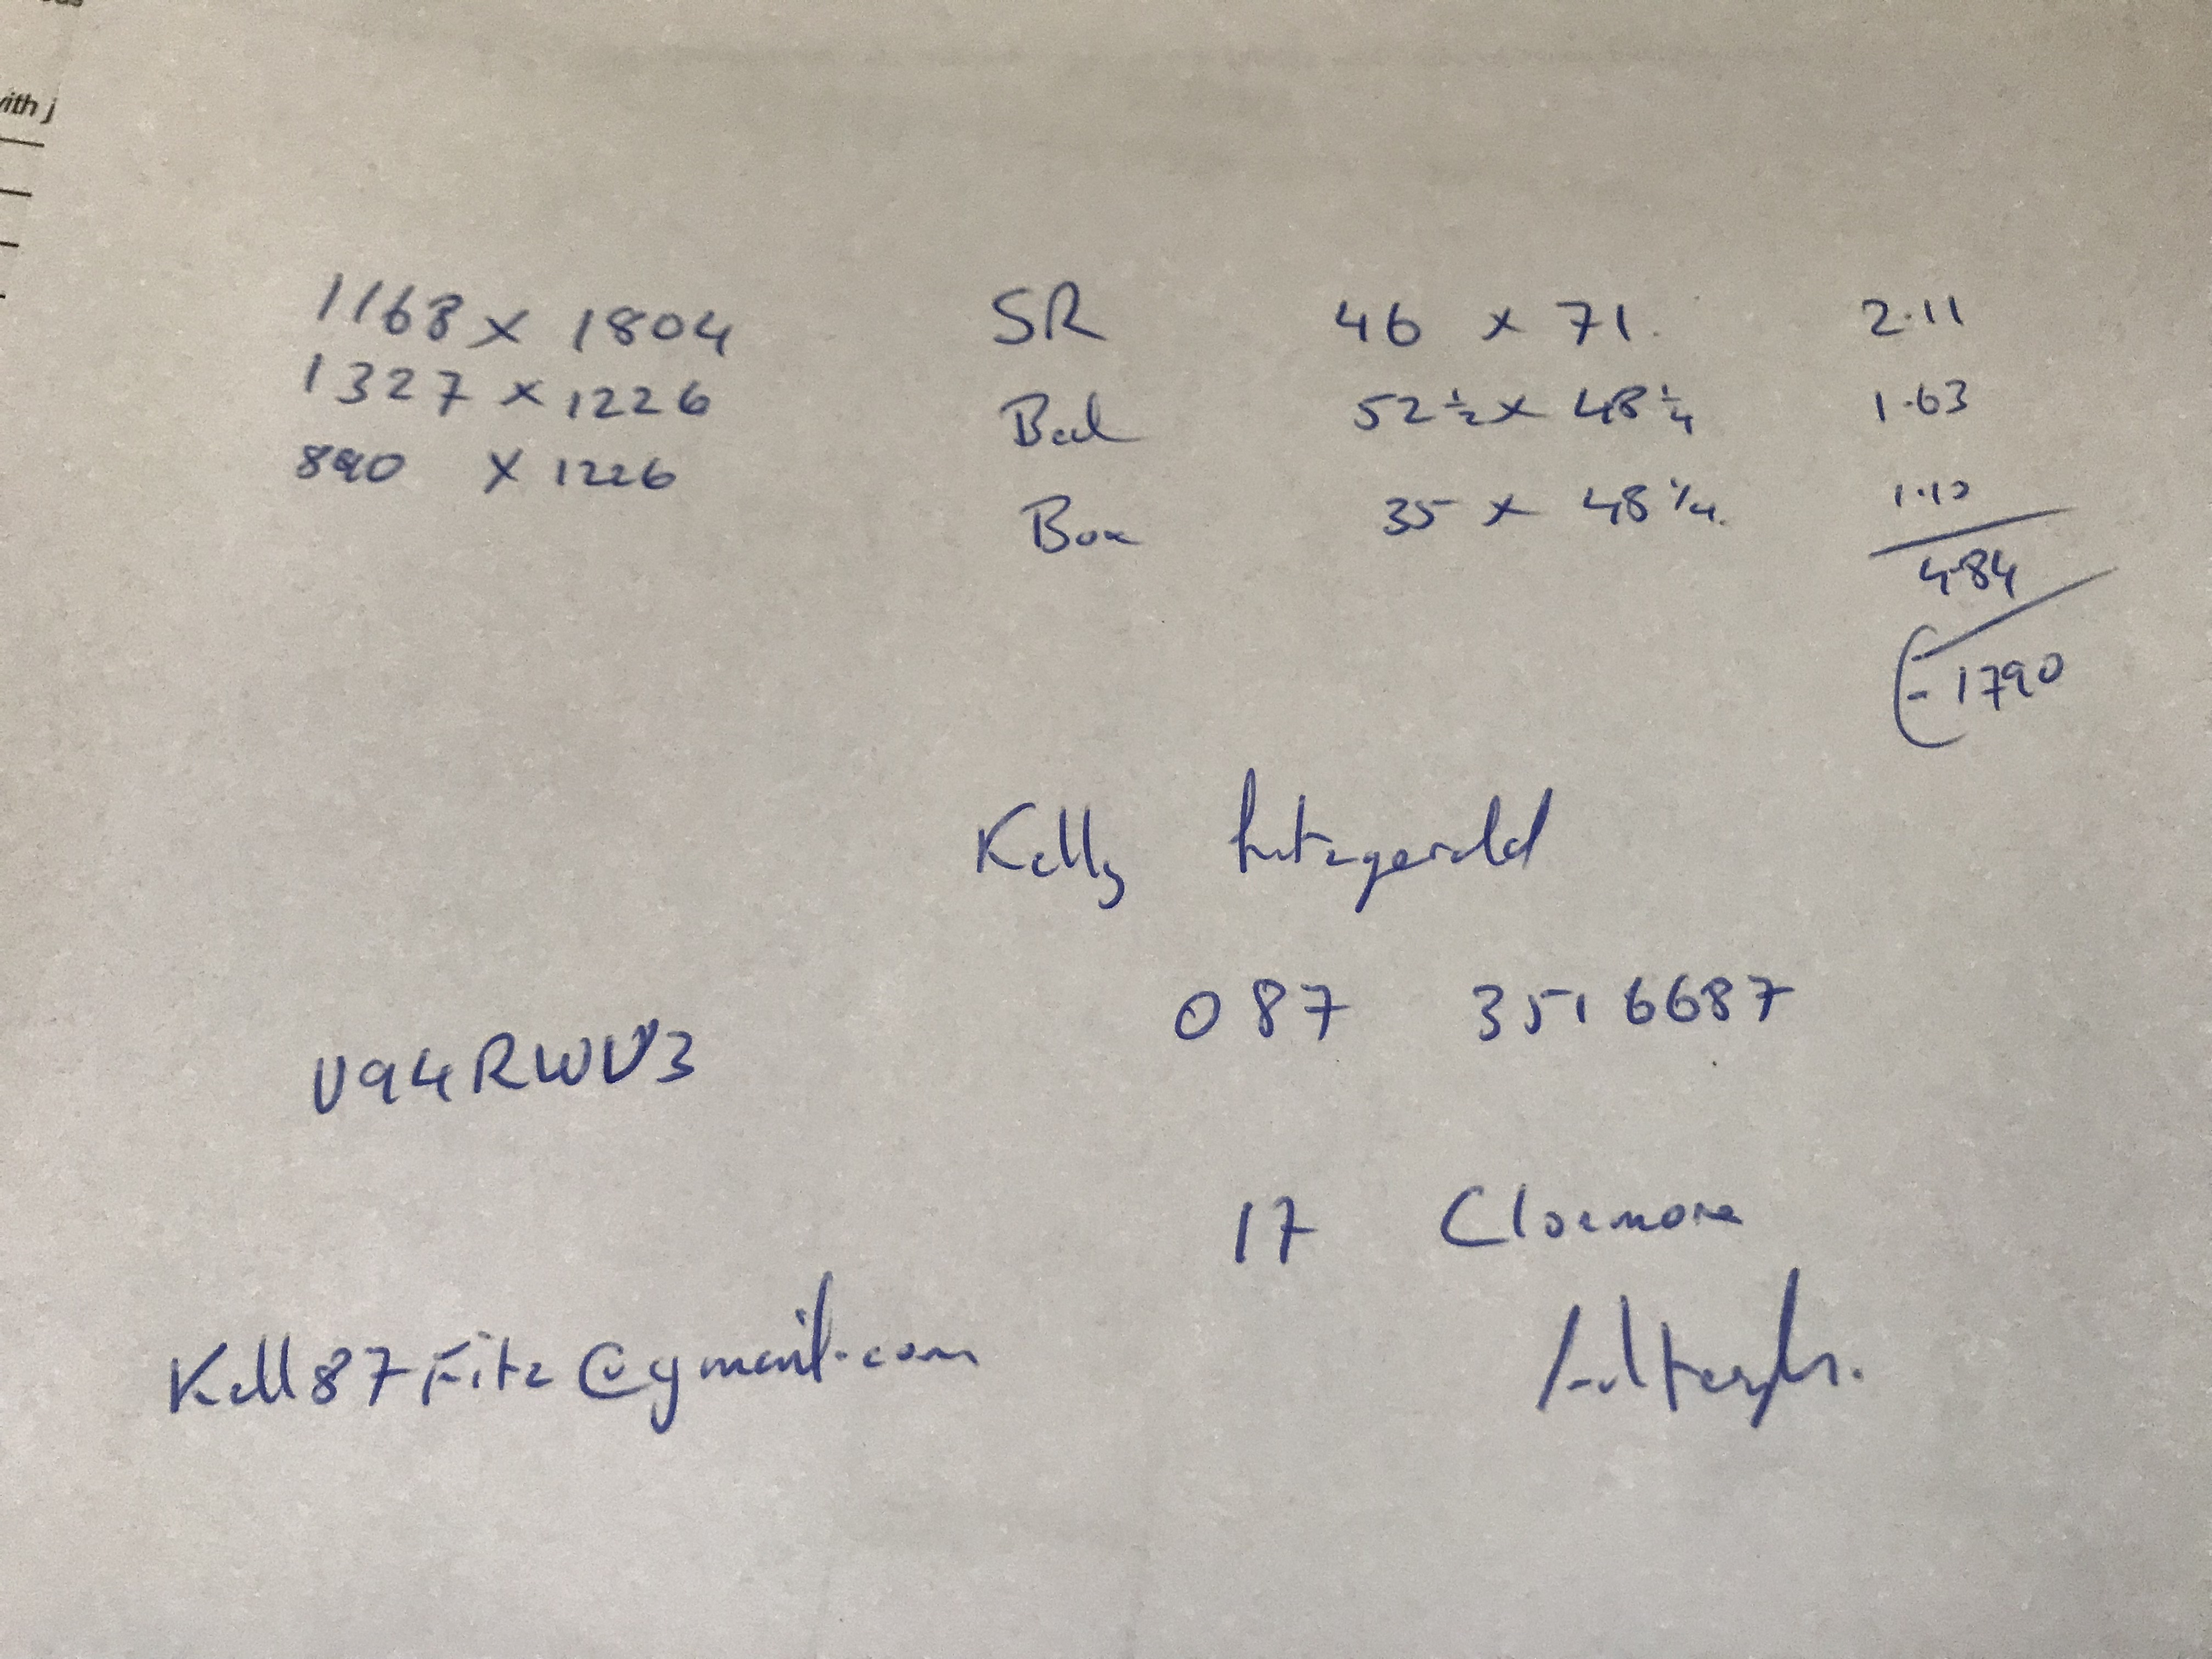 with j
1168 x 1804 SR 46 x 71. 2.11
1327 x 1226 Bed 52 ½ x 48 ¼ 1.63
890 x 1226 Box 35 x 48 ¼. 1.10
4.84
- 1790
Kelly Fitzgerald
087 3516687
V94RWV3
17 Cloemore
Kell87Fitz@gmail.com